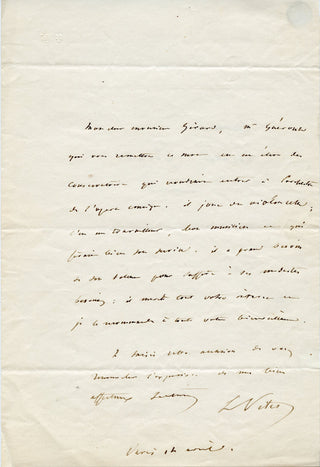 Mon cher monsieur Girard, Mr Guéroult
qui vous remettra ce mot est un élève du
Conservatoire qui voudrait entrer à l'orchestre
de l'opéra comique. il joue du violoncelle;
c'est un travailleur, bon musicien et qui
ferait bien son service. il a grand besoin
de son talent pour suffire à des
besoins; il mérite tout votre intérêt et
je le recommande à toute votre bienveillance.
Je saisis cette occasion de vous
renouveler l'expression de mes bien
affectueux
L Vitet
Paris 14 avril.